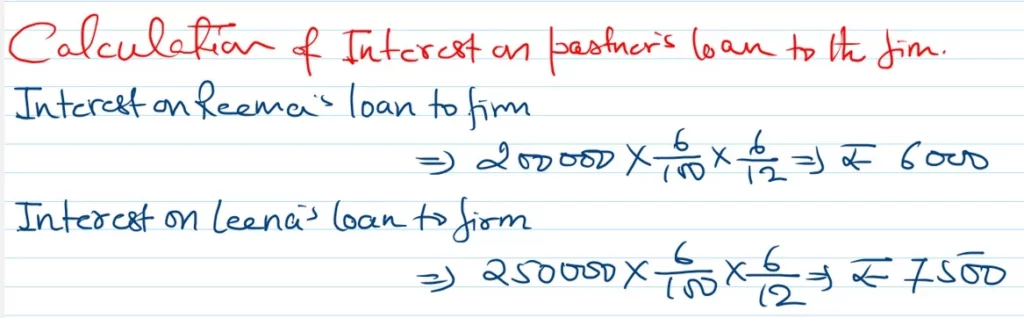 Calculation of Interest on partner's loan to the firm.
Interest on Reema's loan to firm
⇒ 200000 × 6/100 × 6/12 ⇒ ₹ 6000
Interest on Leena's loan to firm
⇒ 250000 × 6/100 × 6/12 ⇒ ₹ 7500